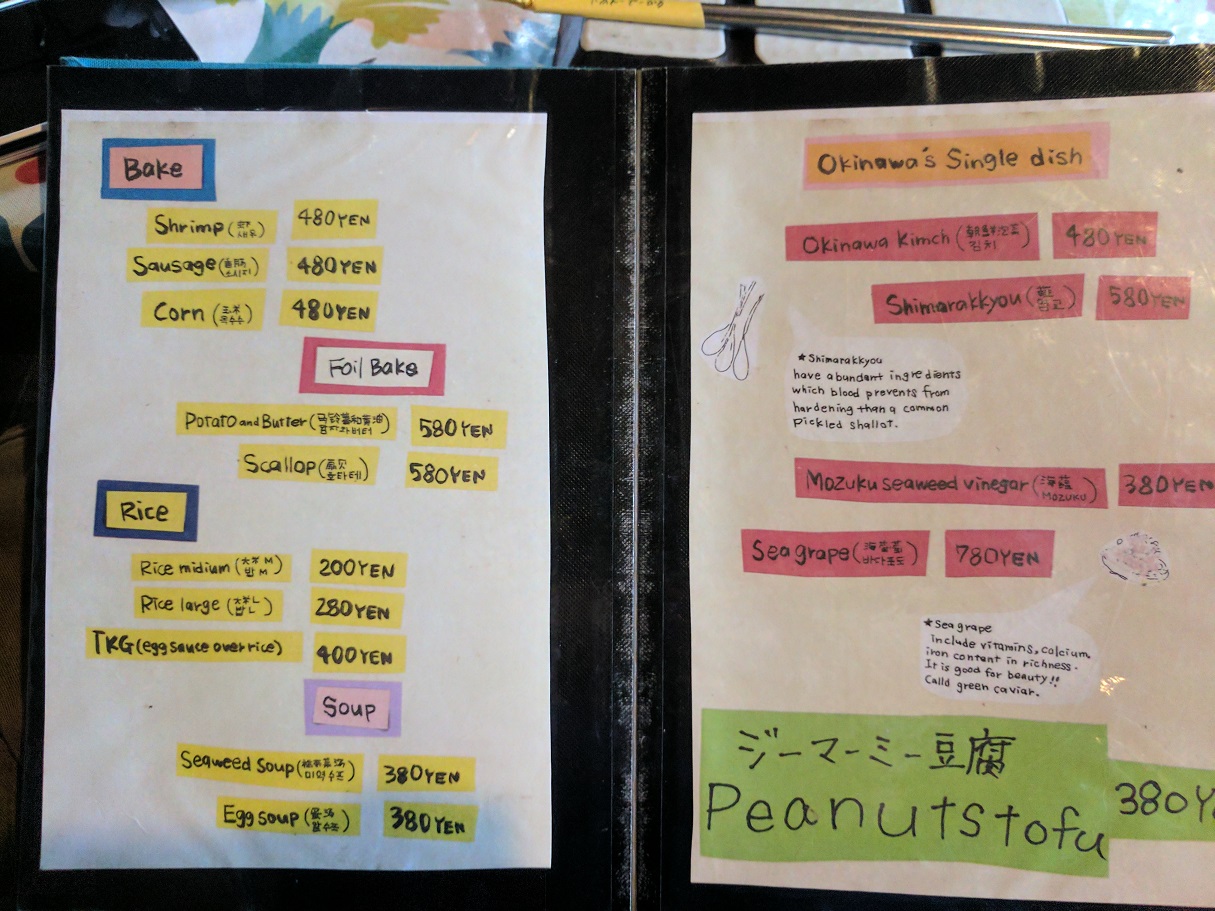 Bake
Shrimp (虾 새우) 480YEN
Sausage (香肠 소시지) 480YEN
Corn (玉米 옥수수) 480YEN
Foil Bake
Potato and Butter (马铃薯和黄油 감자와버터) 580YEN
Scallop (扇贝 호타테) 580YEN
Rice
Rice midium (大米 M 밥 M) 200YEN
Rice large (大米 L 밥 L) 280YEN
TKG (egg sauce over rice) 400YEN
Soup
Seaweed Soup 380YEN
Egg soup 380YEN
Okinawa's Single dish
Okinawa Kimch (朝鮮泡菜 김치) 480YEN
Shimarakkyou 580YEN
★Shimarakkyou
have abundant ingredients
which blood prevents from
hardening than a common
pickled shallot.
Mozuku seaweed vinegar (海蘊 MOZUKU) 380YEN
Sea grape (海葡萄 바다포도) 780YEN
★Sea grape
include vitamins, calcium,
iron content in richness.
It is good for beauty!!
Calld green caviar.
ジーマーミー豆腐
Peanutstofu 380Y